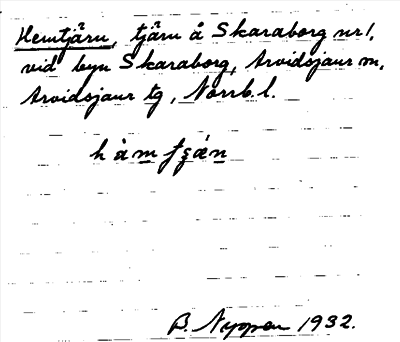 Hemtjärn, tjärn å Skaraborg nr 1,
vid byn Skaraborg, Arvidsjaur sn,
Arvidsjaur tg, Norrb. l.
B. Nyman 1932.